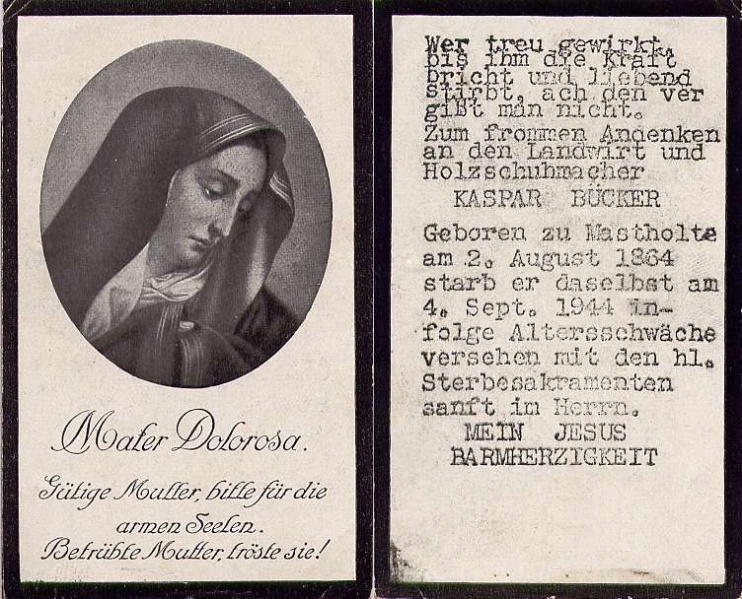 Mater Dolorosa.
Gütige Mutter, bitte für die
armen Seelen.
Betrübte Mutter, tröste sie!
Wer treu gewirkt,
bis ihm die Kraft
bricht und liebend
stirbt, ach den ver
gißt man nicht.
Zum frommen Andenken
an den Landwirt und
Holzschuhmacher
KASPAR BÜCKER
Geboren zu Mastholte
am 2. August 1864
starb er daselbst am
4. Sept. 1944 in-
folge Altersschwäche
versehen mit den hl.
Sterbesakramenten
sanft im Herrn.
MEIN JESUS
BARMHERZIGKEIT